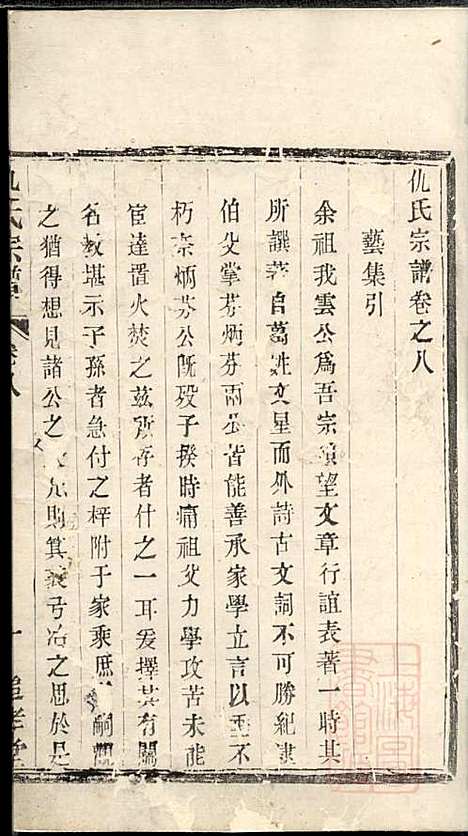 仇氏宗譜卷之八
藝集引
余祖我雲公爲吾宗碩望文章行誼表著一時其
所譔著自葛姓文星而外詩古文詞不可勝紀逮
伯父掌芬炳芬兩公皆能善承家學立言以垂不
朽奈炳芬公旣歿子揆時痛祖父力學攻苦未能
宦達置火焚之茲所存者什之一耳爰擇其有關
名敎堪示子孫者急付之梓附于家乘庶嗣觀
之猶得想見諸公之則箕裘弓冶之思於是
仇氏宗譜 卷之八 一 追孝堂
上海圖書館藏